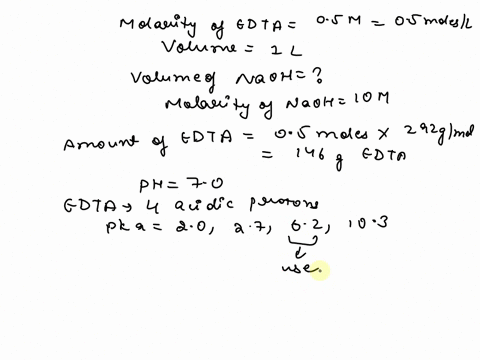 Molarity of EDTA = 0.5 M = 0.5 moles/L
Volume = 1 L
Volume of NaOH = ?
Molarity of NaOH = 10 M
Amount of EDTA = 0.5 moles × 292 g/mol
= 146 g EDTA
PH = 7.0
EDTA → 4 acidic protons
Pka = 2.0, 2.7, 6.2, 10.3
use.